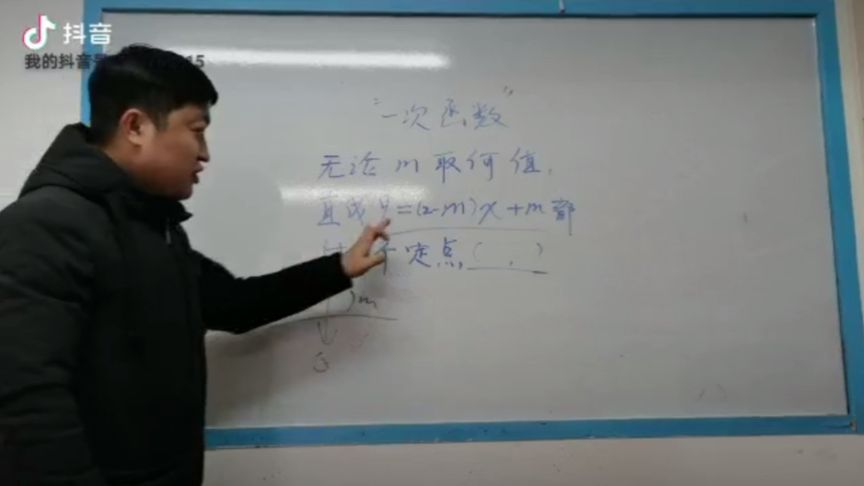 抖音
我的抖音 15
"一次函数"
无论m取何值,
直线y=(2-m)x+m都
个定点( , )
)m